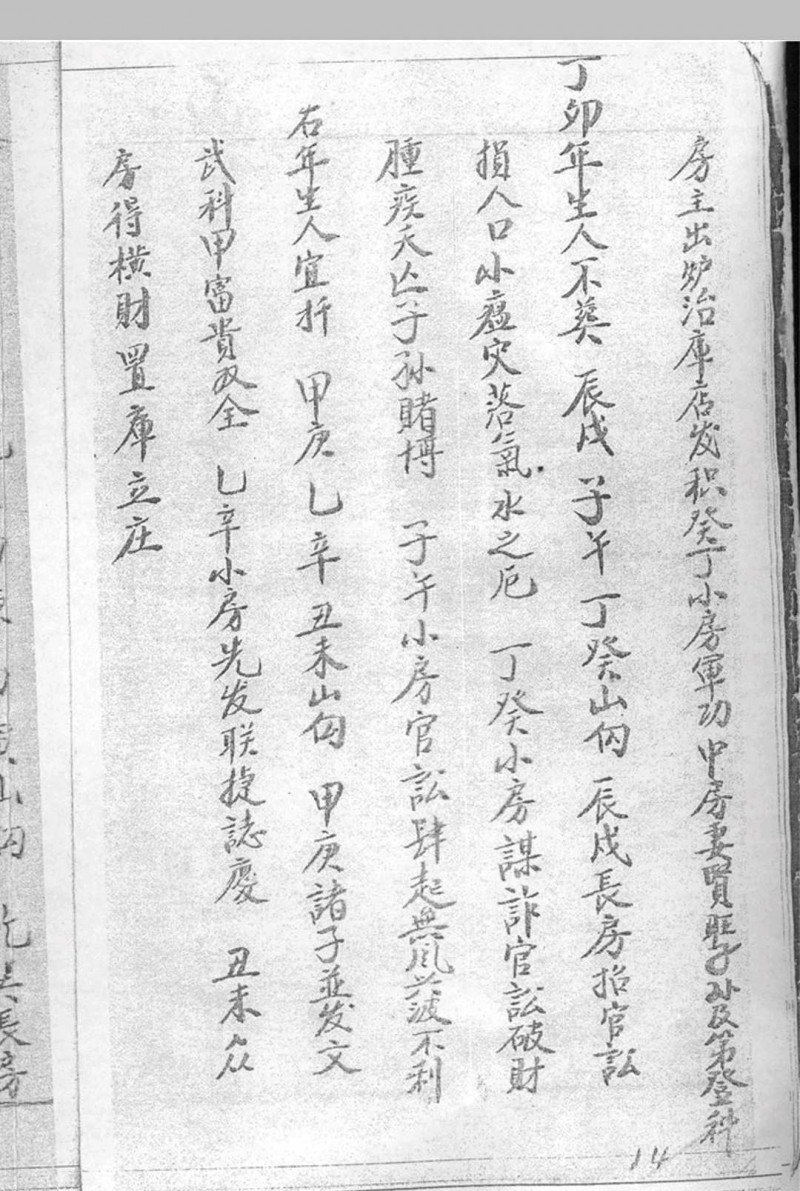 房主出炉冶庫店发积癸丁小房軍功中房妻賢旺子孙及第登科
丁卯年生人不葵 辰戌 子午 丁癸山向 辰戌長房招官訟
損人口小瘟灾落氣水之厄 丁癸小房謀詐官訟破財
腫疾夭亾子孙賭博 子午小房官訟肆起無風兴波不利
右年生人宜扦 甲庚 乚辛 丑未山向 甲庚諸子並发文
武科甲富貴双全 乚辛小房先发联捷誌慶 丑未众
房得横財置庫立庄
14